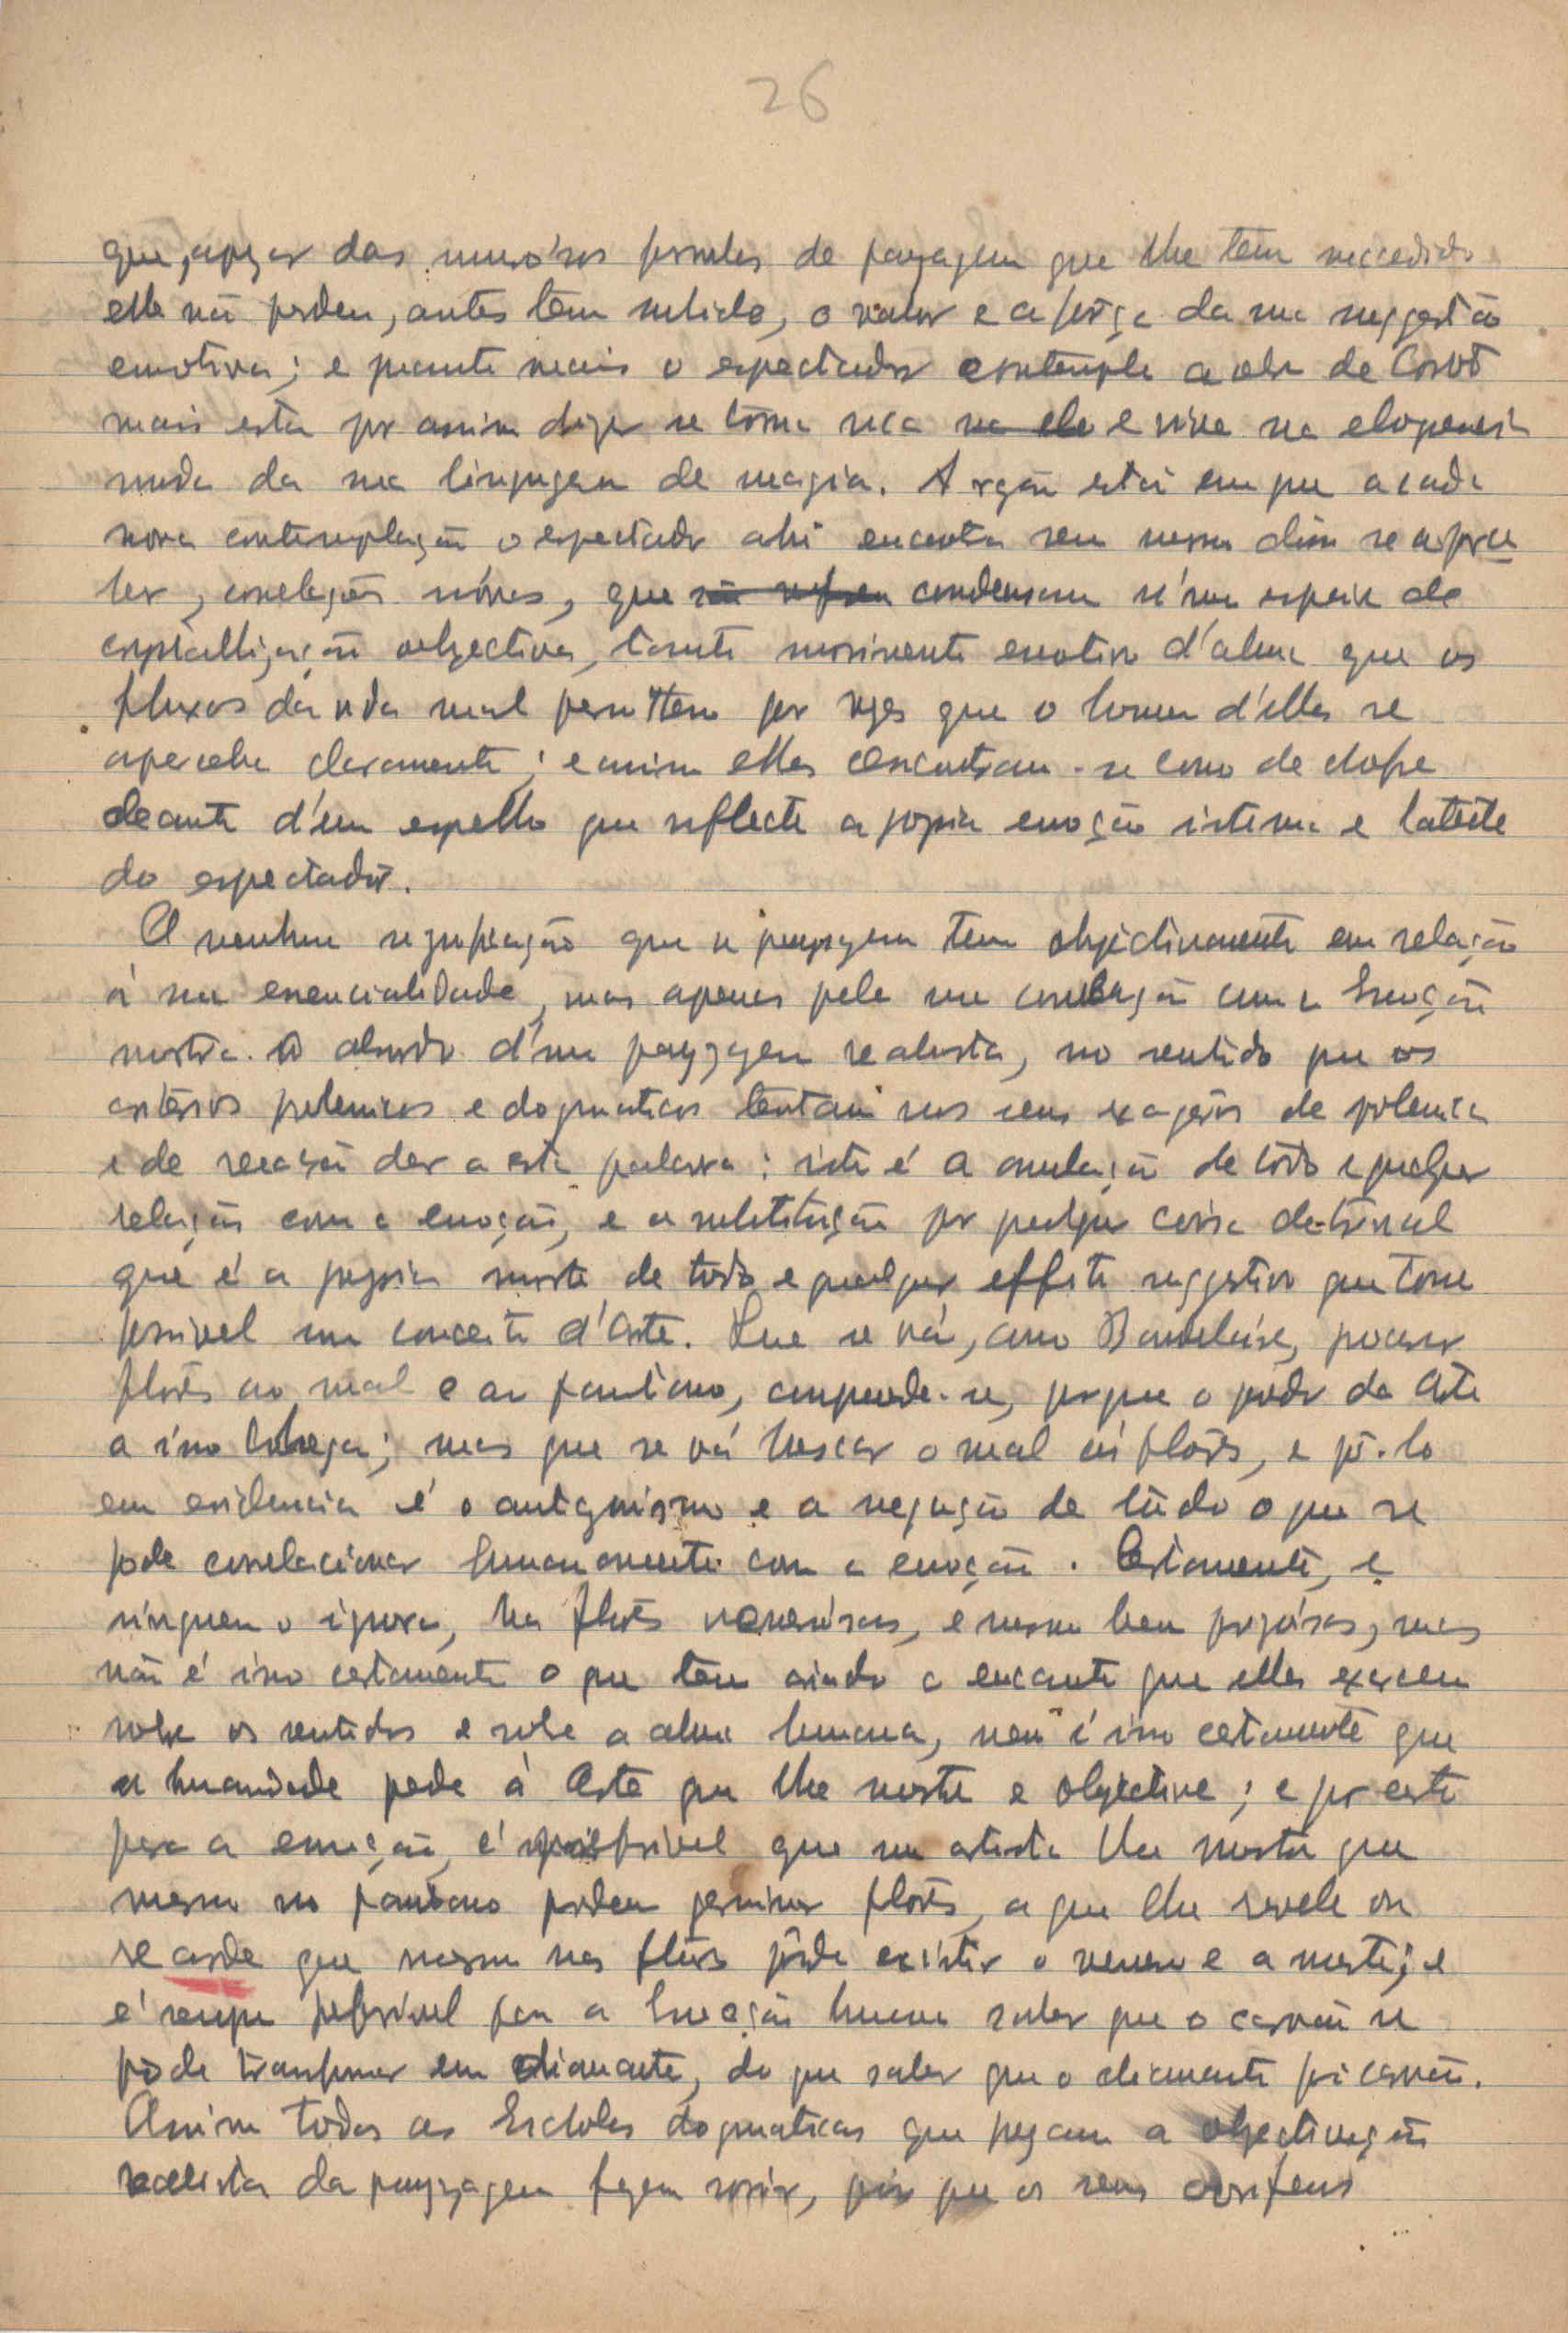 26
que, apezar das numerósas formulas de payzagem que lhe tem succedido
ella não perdeu, antes tem subido, o valor e a fôrça da sua suggestão
emotiva; e quanto mais o espectador contempla a obra de Corot
mais esta por assim dizer se torna sua e vive na eloquencia
muda da sua linguagem de magia. A razão está em que a cada
nova contemplação o espectador ahi encontra sem mesmo d'isso se
correlações nóvas, que condensam n'uma especie de
crystallização objectiva, tanto movimento emotivo d'alma que os
fluxos da vida mal permittem por vezes que o homem d'elles se
aperceba claramente; e assim elles encontram-se como de chofre
deante d'um espelho que reflecte a propria emoção interna e latente
do espectador.
A nenhuma significação que a payzagem tem objectivamente em relação
á sua essencialidade, mas apenas pela sua correlação com a Emoção
mostra o absurdo d'uma payzagem realista, no sentido que os
critérios polemicos e dogmaticos tentam nos seus exageros de polemica
e de reacção dar a esta palavra: isto é a anulação de toda e qualquer
relação com a emoção, e a substituição por qualquer coisa
que é a propria morte de todo e qualquer effeito suggestivo que torne
possivel um conceito d'Arte. Que se vá, como Baudelaire, procurar
flôres ao mal e ao pantano, comprehende-se, porque o poder da Arte
a isso chega; mas que se vá buscar o mal ás flôres, e pô-lo
em evidencia é o antagonismo e a negação de tudo o que se
pode correlacionar humanamente com a emoção. Certamente, e
ninguem o ignora, ha flôres venenósas, e mesmo bem perigósas, mas
não é isso certamente o que tem criado o encanto que ellas exercem
sobre os sentidos e sobre a alma humana, nem é isso certamente que
a humanidade pede á Arte que lhe mostre e objective; e por certo
para a emoção, é preferivel que um artista lhe mostre que
mesmo no pantano podem germinar flôres, a que lhe revele ou
recorde que mesmo nas flôres póde existir o veneno e a morte; e
é sempre preferivel para a Emoção humana saber que o carvão se
póde transformar em diamante, do que saber que o diamante foi carvão.
Assim todas as Escholas dogmaticas que pregam a objectivação
realista da payzagem fazem sorrir, pois que os seus corifeus